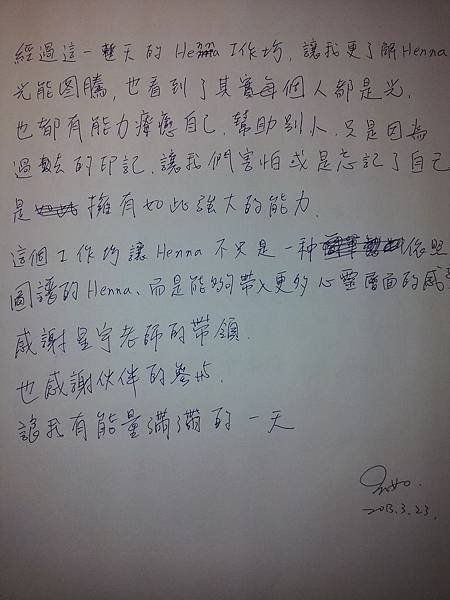 經過這一整天的 Henna 工作坊, 讓我更了解 Henna
光能圖騰, 也看到了其實每個人都是光,
也都有能力療癒自己, 幫助別人, 只是因為
過去的印記, 讓我們害怕或是忘記了自己
是擁有如此強大的能力.
這個工作坊讓 Henna 不只是一种依照
圖譜的 Henna, 而是能夠帶入更多心靈層面的感
感謝星宇老師的帶領.
也感謝伙伴的參與.
讓我有能量滿滿的一天
2013.3.23.